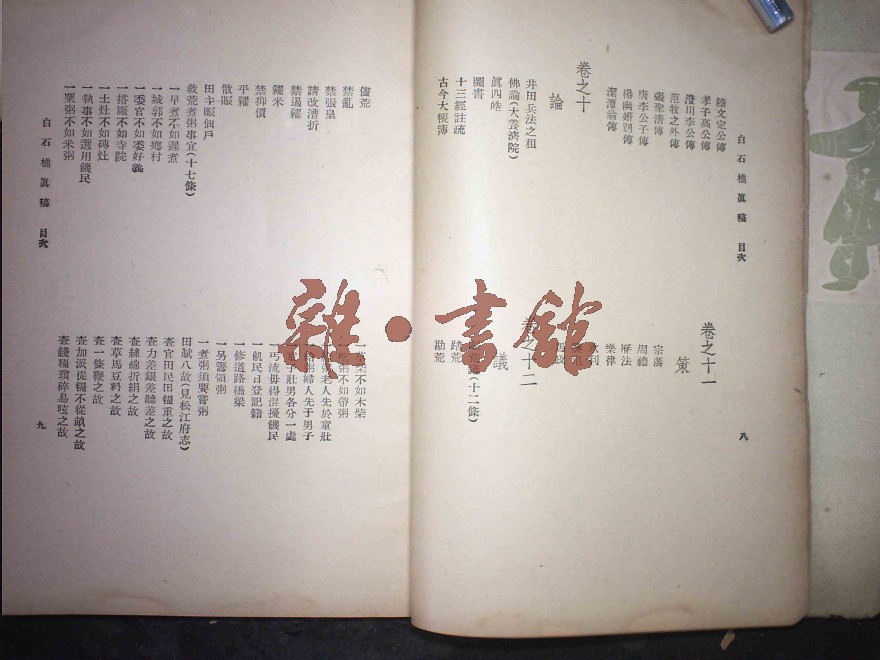 白石樵眞稿　目次
陸文定公傳
孝子高公傳
澄川李公傳
范牧之外傳
張聖清傳
唐李公子傳
楊幽妍別傳
潔潭翁傳
卷之十
論
井田兵法之租
佛論(大養濟院)
眞四皓
圖書
十三經註疏
古今大帳簿
卷之十一
策
宗藩
周禮
曆法
樂律
水利
卷之十二
議
(十二條)
踏荒
勘荒
八
備荒
禁亂
禁張皇
請改漕折
禁遏糴
糴米
禁抑價
平糴
散賑
田主賑佃戶
救荒煮粥事宜(十七條)
一早煮不如遲煮
一城郭不如鄉村
一委官不如委好義
一搭廠不如寺院
一土灶不如磚灶
一執事不如選用饑民
一粟粥不如米粥
白石樵眞稿　目次
不如木柴
粥不如帶粥
老人先於童壯
婦人先于男子
子壯男各分一處
一丐流毋得混擾饑民
一飢民日登記籍
一修道路橋梁
一另籌領粥
一煮粥須要嘗粥
田賦八故(見松江府志)
查官田民田糧重之故
查力差銀差聽差之故
查絲綿折絹之故
查草馬豆料之故
查一條鞭之故
查加派從糧不從畝之故
查錢糧瑣碎易眩之故
九
雜·書館